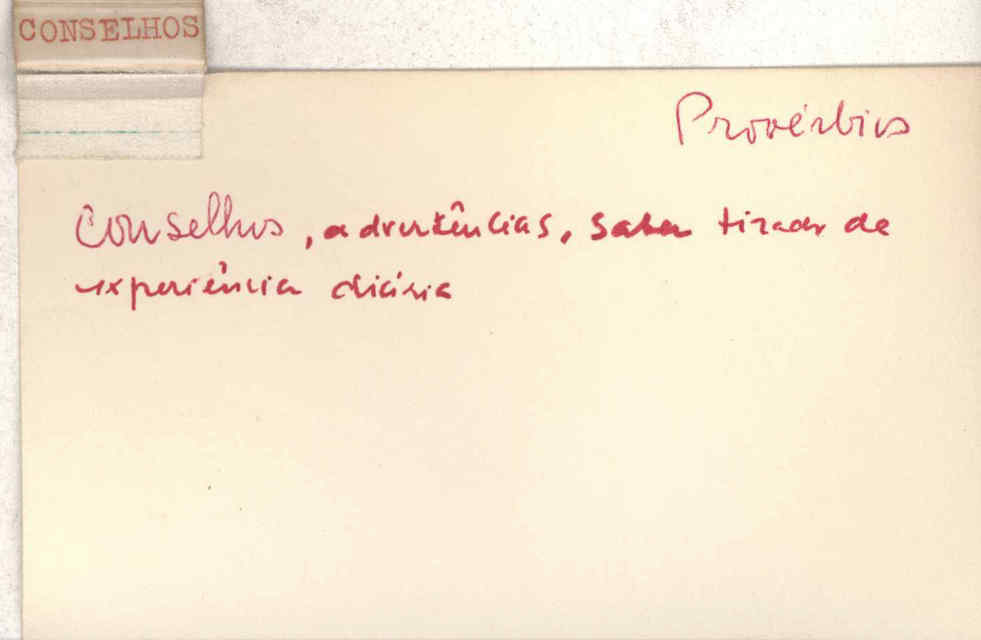 CONSELHOS
Provérbios
Conselhos, advertências, saber tirado da
experiência diária